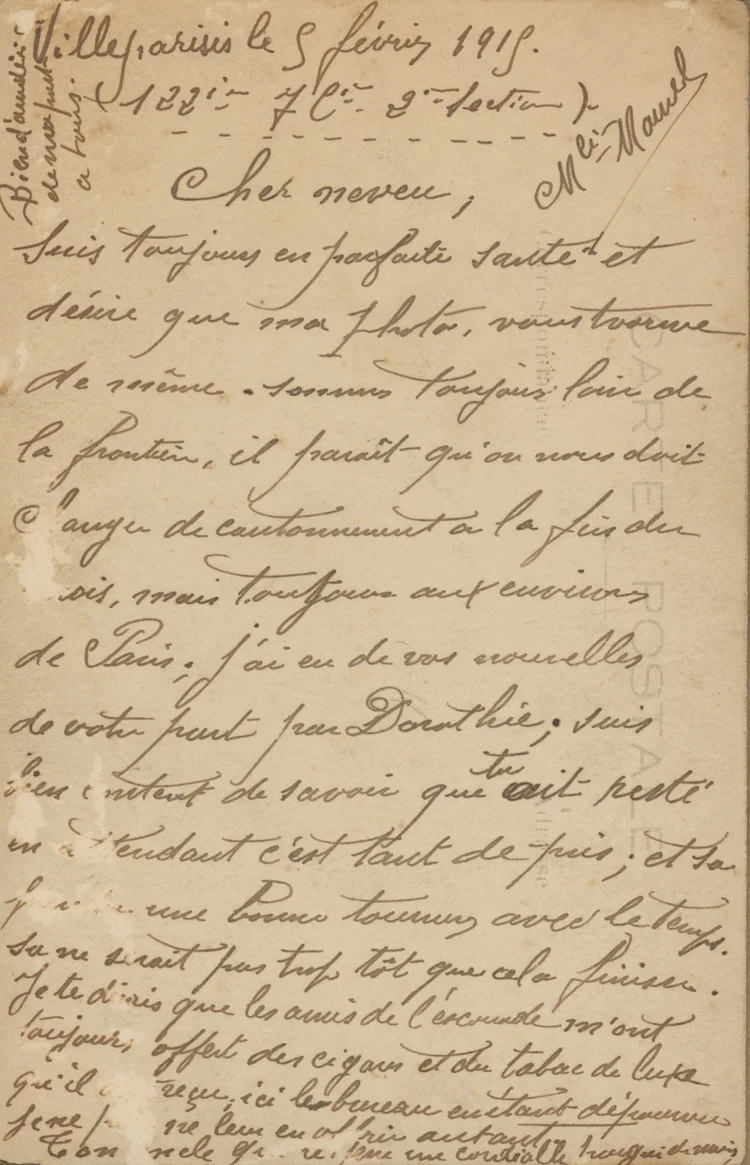 Villeparisis le 5 février 1915.
(122ie 7 Cie 2me Section)
Bien d'amitiés
de ma part
a tous.
Mle Marcel
Cher neveu,
Suis toujours en parfaite santé et
désire que ma photo, vous trouve
de même. sommes toujours loin de
la frontière, il paraît qu'on nous doit
changer de cantonnement a la fin du
mois, mais toujours aux environs
de Paris; j'ai eu de vos nouvelles
de votre part par Dorothie; suis
bien content de savoir que tu ait resté
en attendant c'est tant de pris; et sa
une bonne tournure avec le temps.
sa ne serait pas trop tôt que cela finisse.
Je te dirais que les amis de l'escouade m'ont
toujours offert des cigares et du tabac de luxe
qu'il reçu, ici le bureau en étant dépourvu
je ne leur en offrir autant,
Ton oncle qui une cordialle poignée de mains
CARTE POSTALE
Correspondance
Adresse